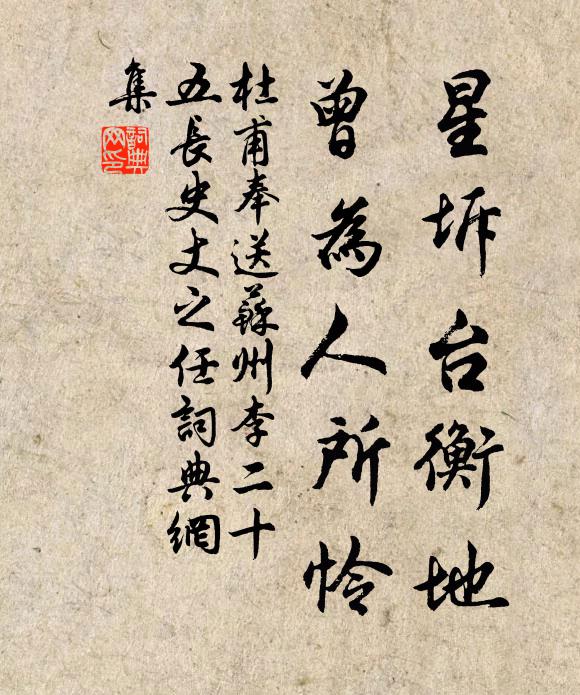 星坼台衡地
曾為人所怜
杜甫奉送蘇州李二十
五長史丈之任詞典網
集
詞典
网印